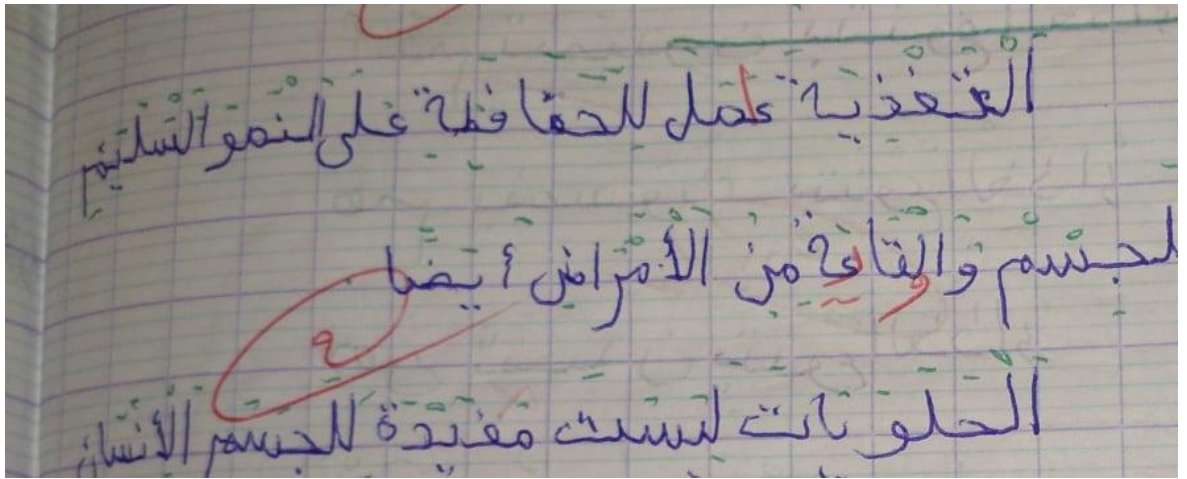 التغذية عامل للحفاظة على النمو السليم
لجسم والقاية من الأمراض أيضا
الحلويات ليست مفيدة للجسم الأنسان